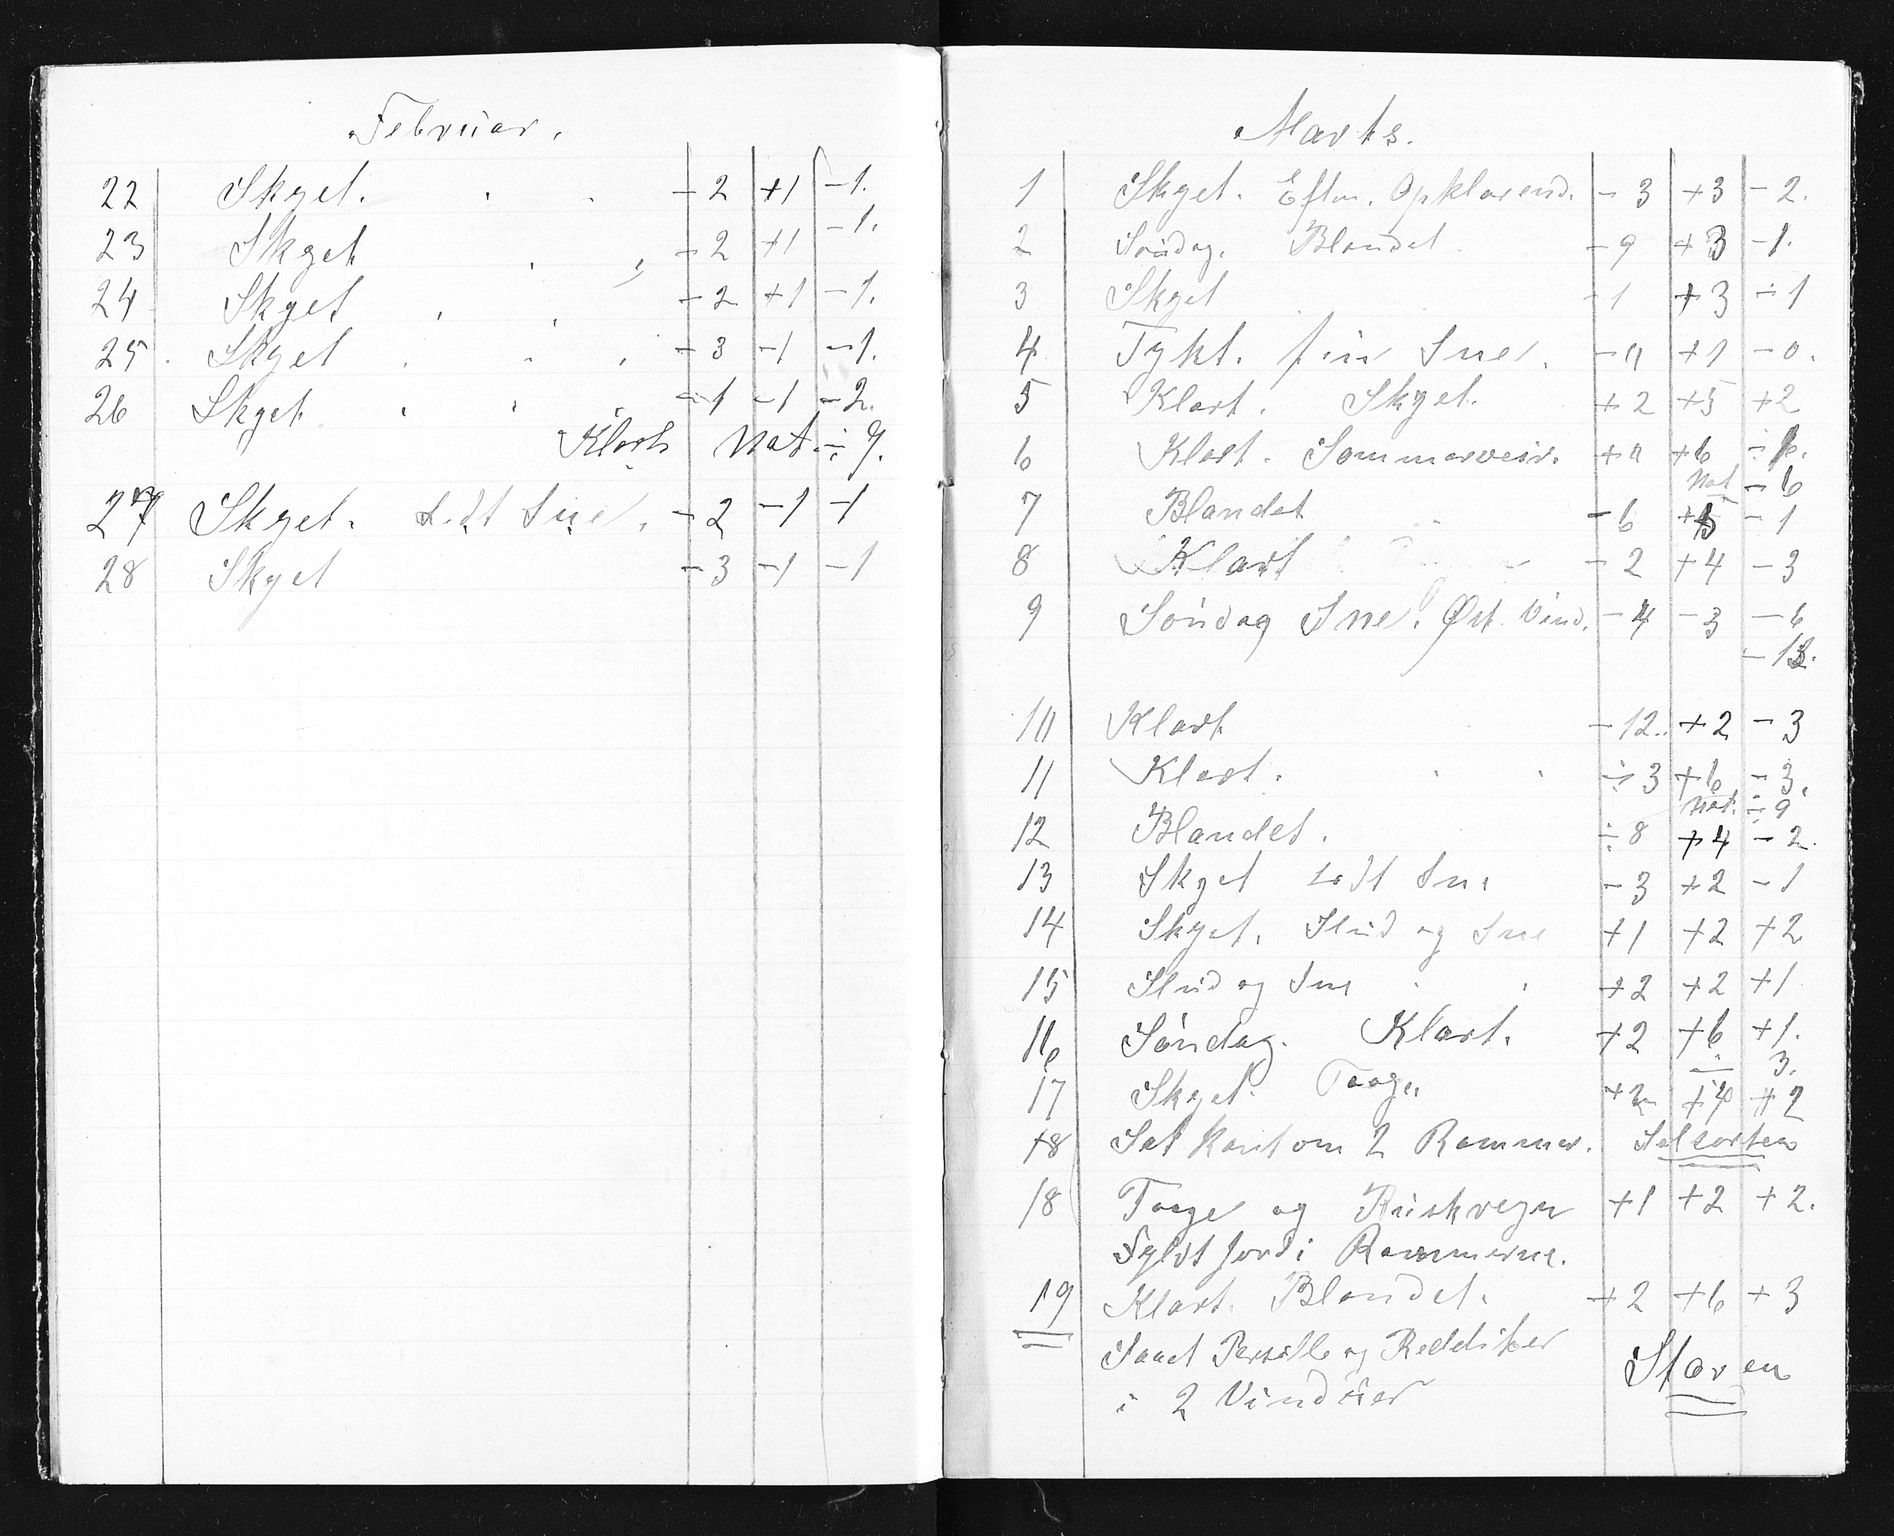 Februar.
22 Skyet. - 2 +1 - 1.
23 Skyet - 2 +1 - 1.
24 Skyet - 2 +1 - 1.
25 Skyet - 3 - 1 - 1.
26 Skyet - 1 - 1 - 2.
Klart Nat ÷ 9.
27 Skyet. Lidt Sne. - 2 - 1 - 1
28 Skyet - 3 - 1 - 1
Marts.
1 Skyet. Eftm. Opklarend. - 3 +3 - 2.
2 Søndag. Blandet. - 9 +3 - 1.
3 Skyet - 1 +3 ÷ 1
4 Tykt. fin Sne. - 0 +1 - 0.
5 Klart. Skyet. +2 +5 +2
6 Klart. Sommerveir. +0 +6 ÷
Nat - 6
7 Blandet - 6 - 1
8 Klart - 2 +4 - 3
9 Søndag Sne. Øst. Vind. - 4 - 3 - 6
10 Klart - 12. +2 - 3
11 Klart. ÷ 3 +6 - 3.
Nat. ÷ 9
12 Blandet. ÷ 8 +4 - 2.
13 Skyet Lidt Sne - 3 +2 - 1
14 Skyet. Slud og Sne +1 +2 +2
15 Slud og Sne +2 +2 +1
16 Søndag. Klart. +2 +6 +1.
3.
17 Skyet. Taage +2 +4 +2
18 Sat Kant om 2 Rammer.
18 Taage og Ruskregn +1 +2 +2.
Fyldt Jord i Rammerne.
19 Klart. Blandet. +2 +6 +3
Saaet Persille og Reddiker
i 2 Vinduer Stæren